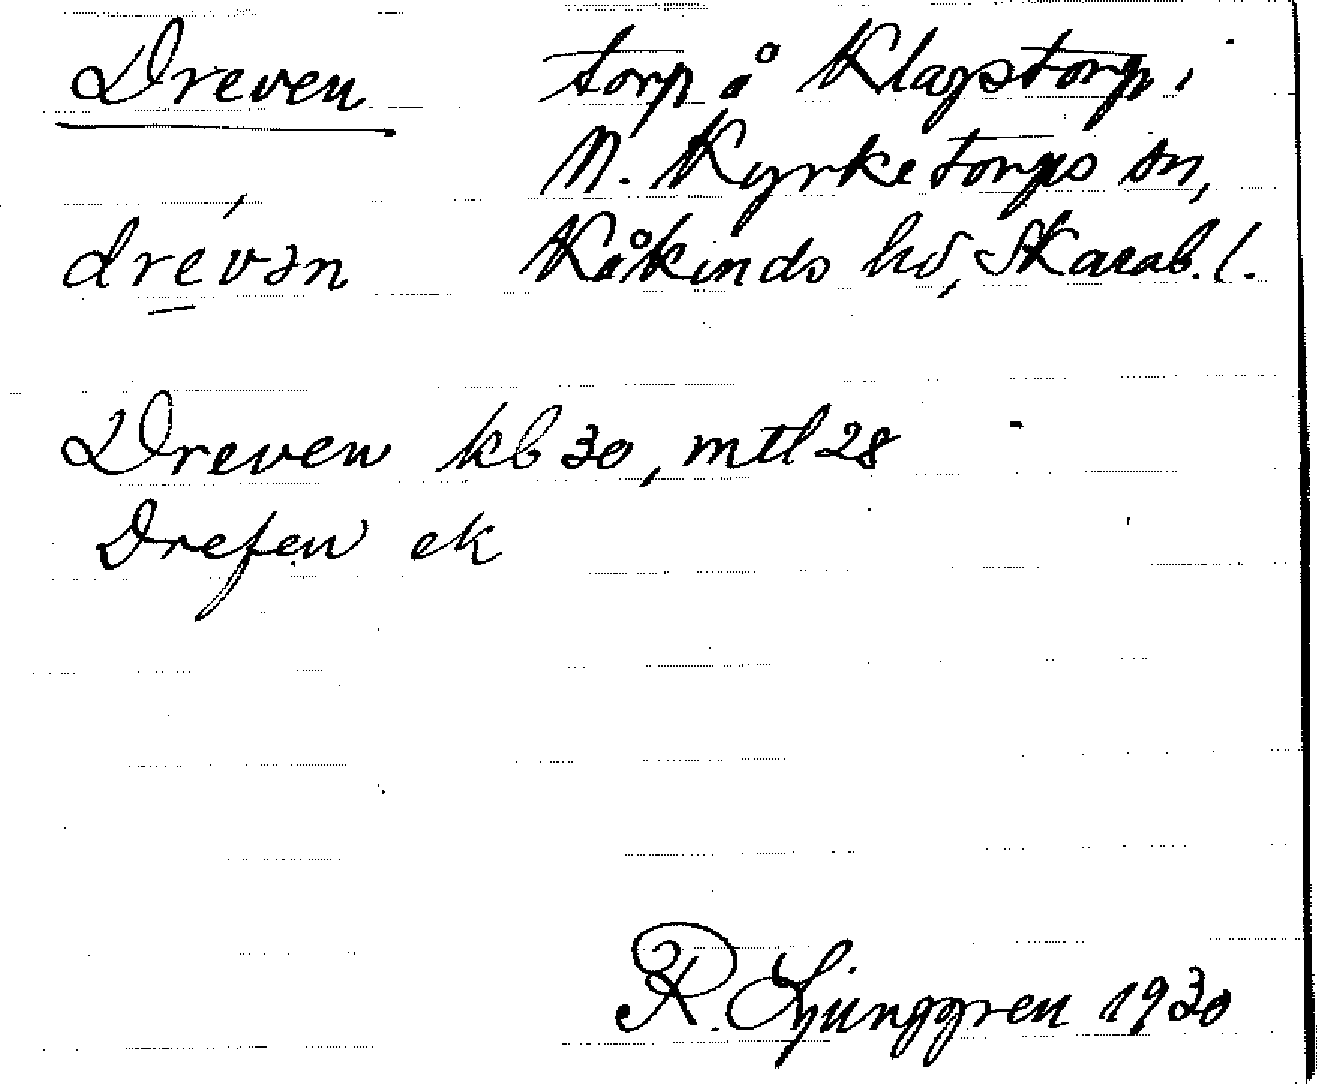 Dreven torp å Klagstorp,
N. Kyrketorps sn,
drévən Kåkinds hd, Skarab. l.
Dreven kb 30, mtl 28
Drefen ek
R. Ljunggren 1930